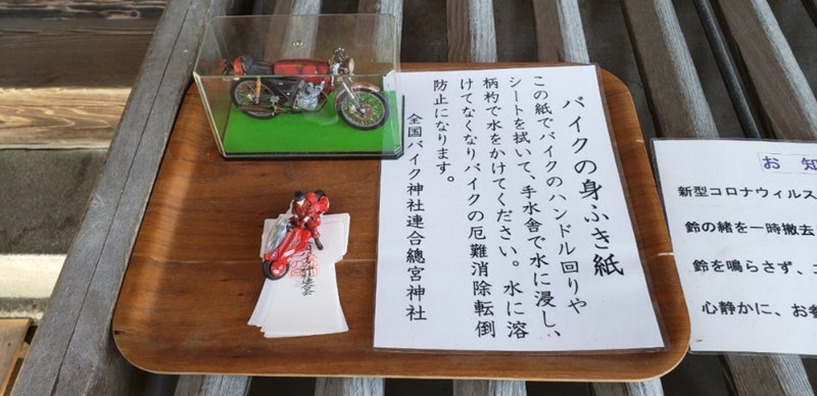 バイクの身ふき紙
この紙でバイクのハンドル回りや
シートを拭いて、手水舎で水に浸し、
柄杓で水をかけてください。水に溶
けてなくなりバイクの厄難消除転倒
防止になります。
全国バイク神社連合總宮神社
お 知
新型コロナウィルス
鈴の緒を一時撤去
鈴を鳴らさず、
心静かに、お参